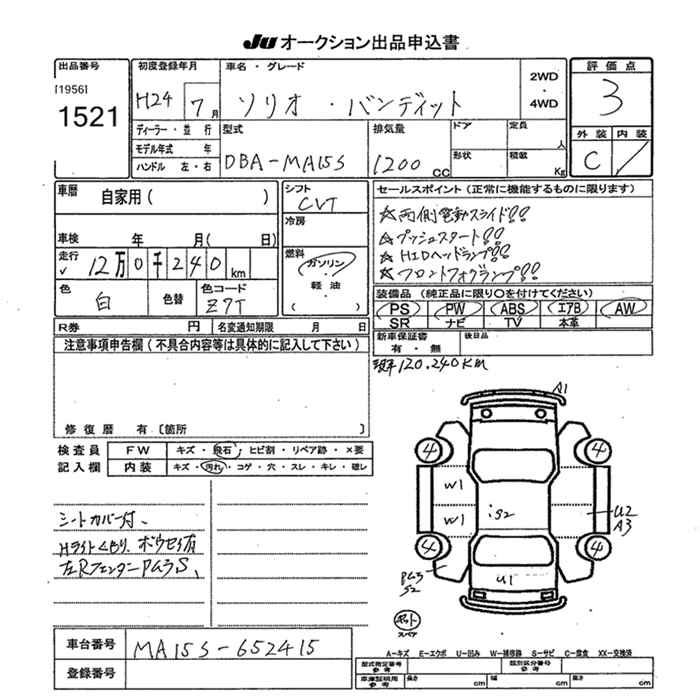 JU オークション出品申込書
出品番号
[1956]
1521
初度登録年月
H24 7月
車名・グレード
ソリオ・バンディット
2WD
・
4WD
評価点
3
外装 内装
C
ディーラー・並行
モデル年式 年
ハンドル 左・右
型式
DBA-MA15S
排気量
1200 CC
ドア
定員 人
形状
積載 Kg
車歴
自家用( )
車検 年 月( 日)
走行
12万0千240km
色
白
色替
色コード
Z7T
シフト
CVT
冷房
燃料
ガソリン
・
軽油
セールスポイント(正常に機能するものに限ります)
☆両側電動スライド!!
☆プッシュスタート!!
☆HIDヘッドランプ!!
☆フロントフォグランプ!!
装備品 (純正品に限り〇を付けてください)
PS PW ABS エアB AW
SR ナビ TV 本革
R券 円
名変通知期限 月 日
新車保証書
有・無
後日品
注意事項申告欄(不具合内容等は具体的に記入して下さい)
修復歴 有〔箇所 〕
120.240KM
検査員
記入欄
FW キズ・飛石・ヒビ割・リペア跡・×要
内装 キズ・汚れ・コゲ・穴・スレ・キレ・破レ
シートカバー付、
Hライトくもり、ボウセイ有
左Rフェンダー PM3S、
A1
4
4
W1
W1
iS2
U2
A3
4
4
PM3
S2
U1
スペア
車台番号
MA15S-652415
登録番号
A-キズ E-エクボ U-凹み W-補修跡 S-サビ C-腐食 XX-交換済
型式指定番号
参考
類別区分番号
参考
車庫証明用
参考
長さ cm
幅 cm
高さ cm